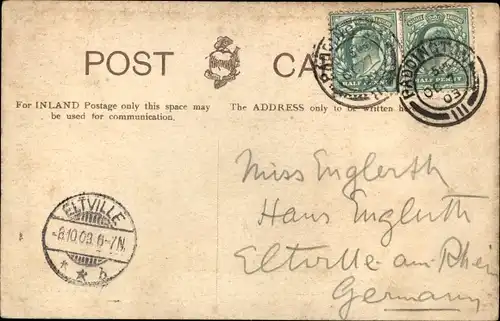 POST CA
PADDINGTON
HALF PENNY
For INLAND Postage only this space may
be used for communication.
The ADDRESS only to be written here
Miss Englerth
Haus Englerth
Eltville-am-Rhei
Germany
ELTVILLE
-8.10.03.6-7N.
* * b